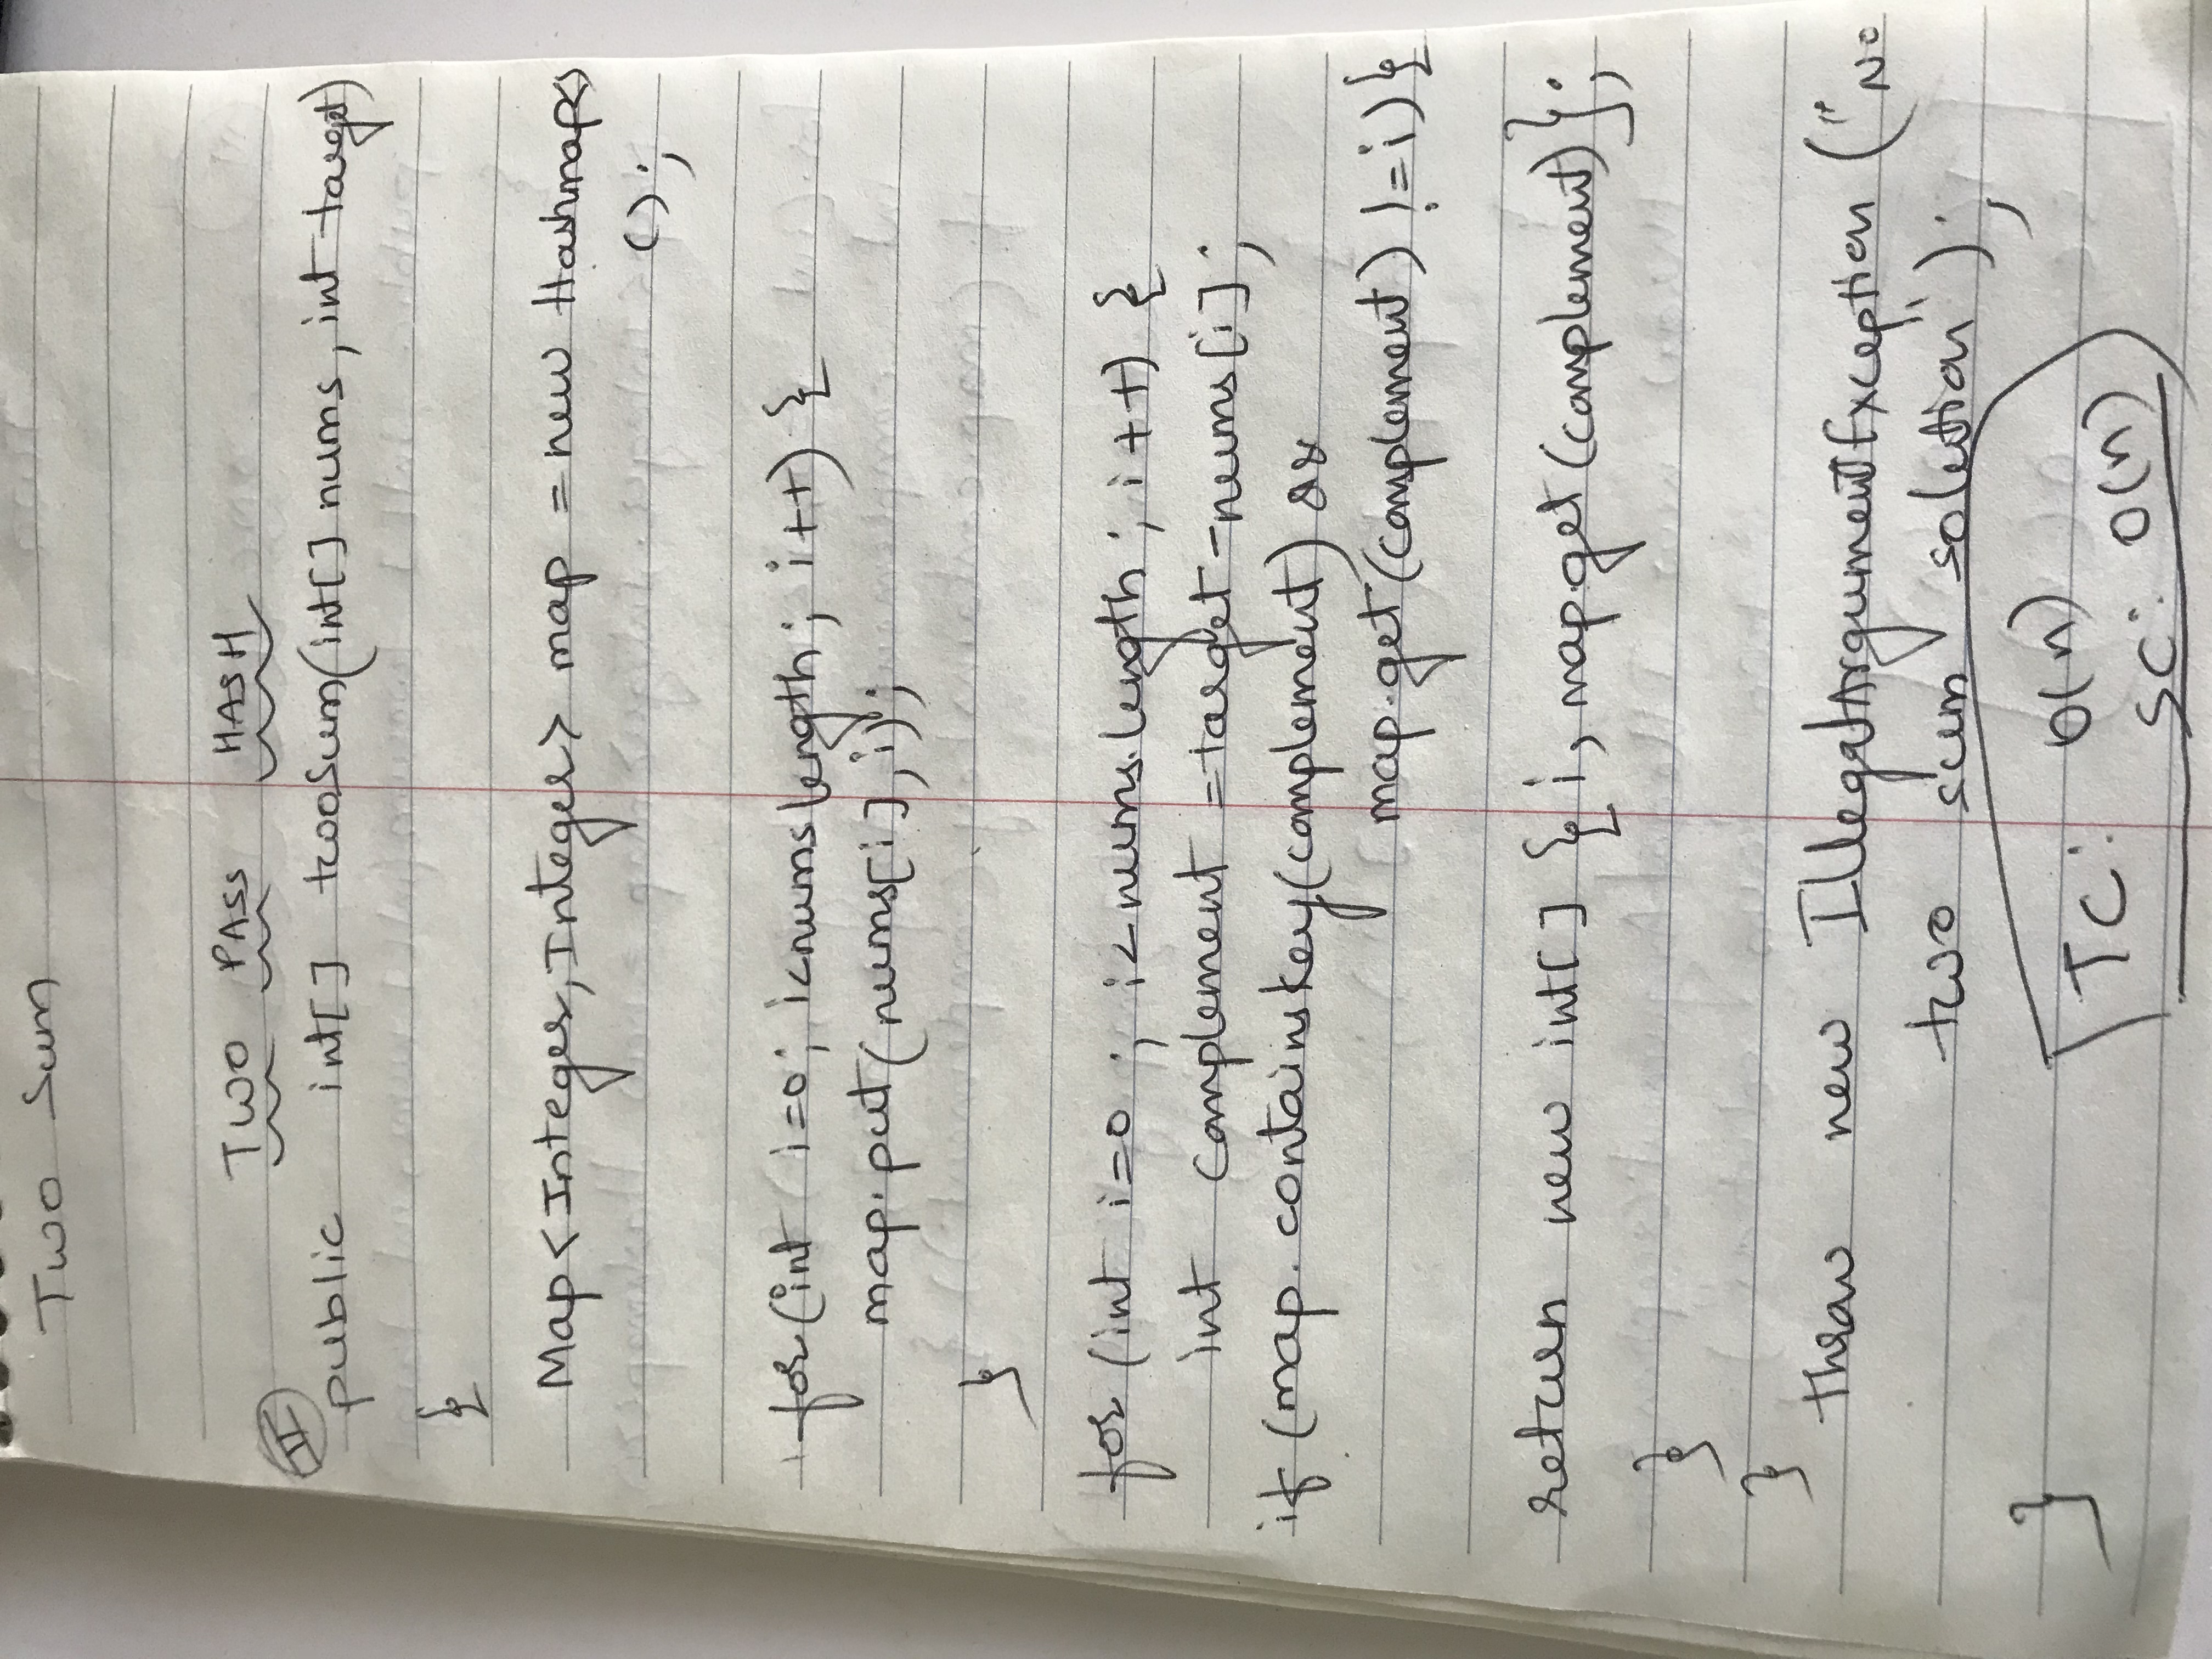 Two Sum
TWO PASS HASH
II
public int[] twoSum(int[] nums, int target)
{
Map<Integer, Integer> map = new Hashmap<>
();
for(int i=0; i<nums length; i++) {
map.put(nums[i], i);
}
for (int i=0 ; i<nums.length ; i++) {
int complement = target - nums[i];
if (map.containskey(complement) &&
map.get(complement) != i) {
return new int[] { i, map.get(complement) };
}
}
throw new IllegalArgumentException ("No
two sum solution");
}
TC: O(n)
SC: O(n)